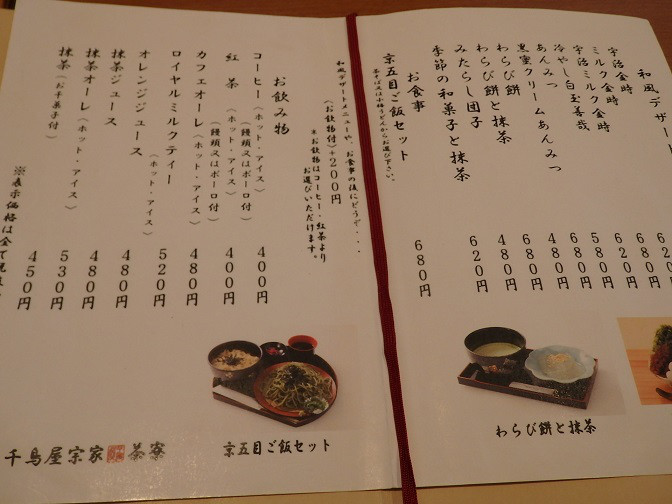 和風デザート
宇治金時
ミルク金時
宇治ミルク金時
冷やし白玉善哉
あんみつ
黒蜜クリームあんみつ
わらび餅
わらび餅と抹茶
みたらし団子
季節の和菓子と抹茶 620円
お食事
京五目ご飯セット 680円
茶そば又は小梅うどんからお選び下さい。
和風デザートメニューや、お食事の後にどうぞ・・・
(お飲物付)+200円
※お飲物はコーヒー・紅茶より
お選びいただけます。
お飲み物
コーヒー(ホット・アイス) 400円
(饅頭又はボーロ付)
紅茶(ホット・アイス) 400円
(饅頭又はボーロ付)
カフェオーレ(ホット・アイス) 480円
ロイヤルミルクティー(ホット・アイス) 520円
オレンジジュース 480円
抹茶ジュース 480円
抹茶オーレ(ホット・アイス) 530円
抹茶(お干菓子付) 450円
※表示価格は全て税
わらび餅と抹茶
京五目ご飯セット
千鳥屋宗家 茶寮